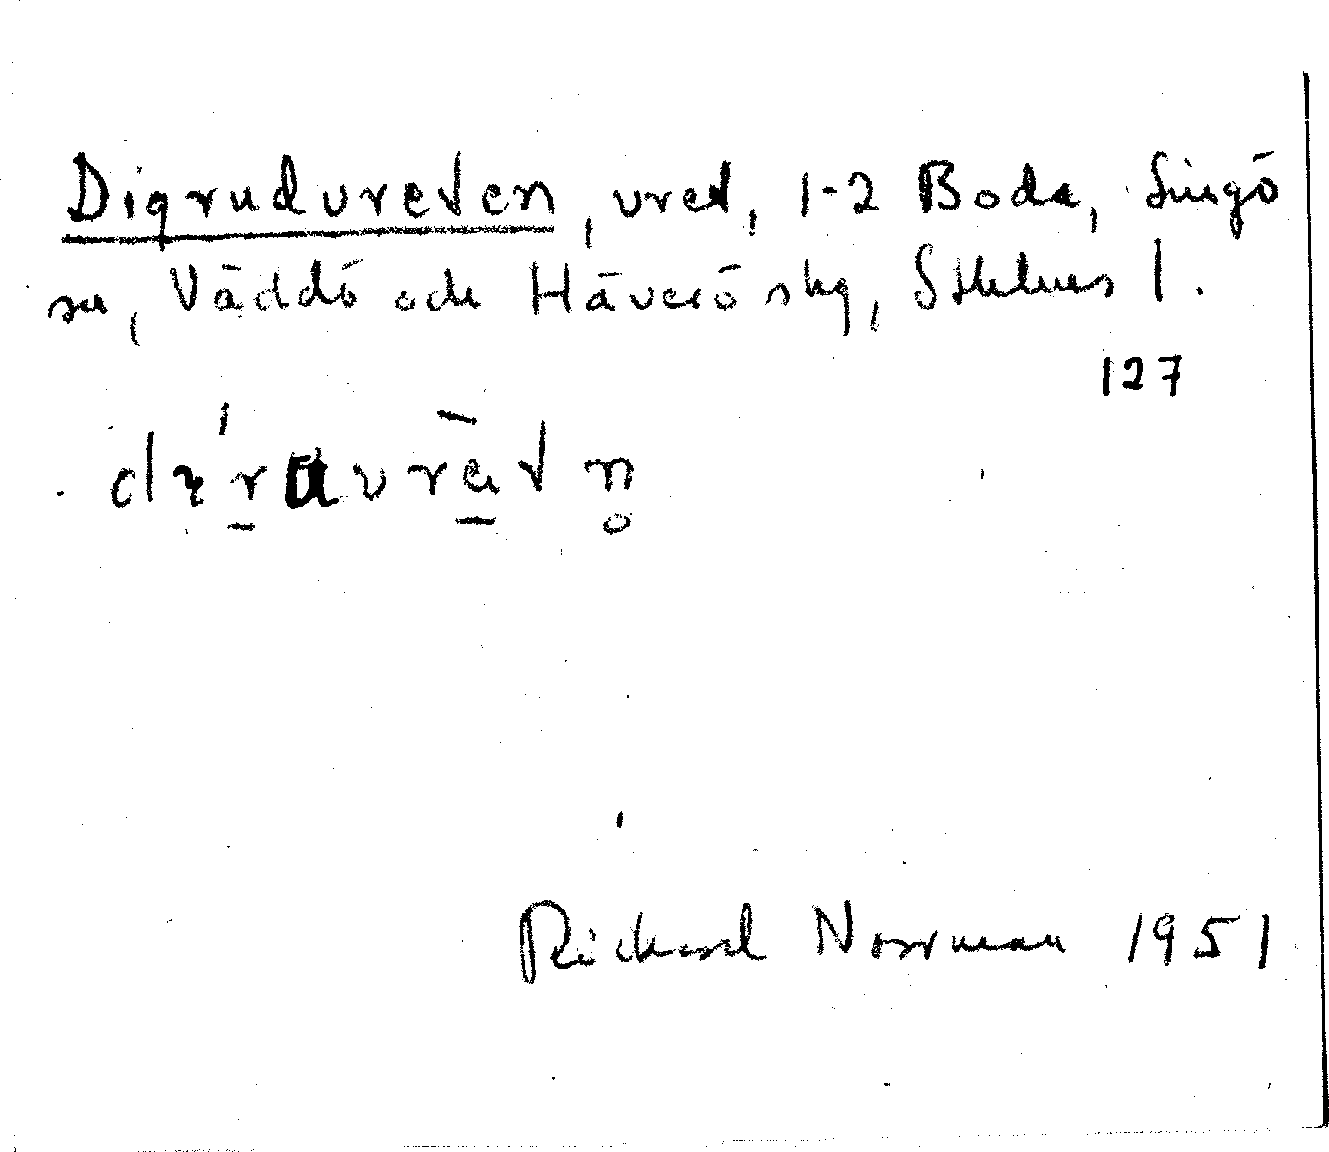 Digrudvreten, vret, 1-2 Boda, Singö
sn, Väddö och Häverö skg, Sthlms l.
127
Richard Norrman 1951